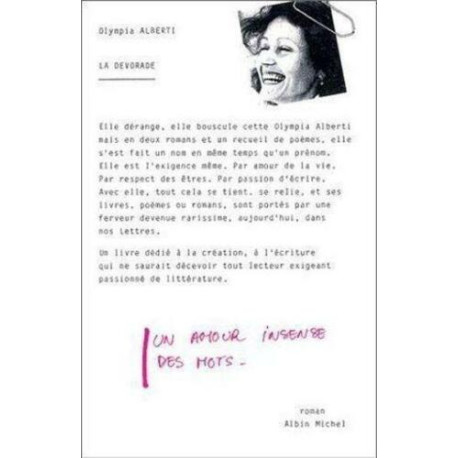 Olympia ALBERTI
LA DEVORADE
Elle dérange, elle bouscule cette Olympia Alberti
mais en deux romans et un recueil de poèmes, elle
s'est fait un nom en même temps qu'un prénom.
Elle est l'exigence même. Par amour de la vie.
Par respect des êtres. Par passion d'écrire.
Avec elle, tout cela se tient, se relie, et ses
livres, poèmes ou romans, sont portés par une
ferveur devenue rarissime, aujourd'hui, dans
nos Lettres.
Un livre dédié à la création, à l'écriture
qui ne saurait décevoir tout lecteur exigeant
passionné de littérature.
UN AMOUR INSENSE
DES MOTS -
roman
Albin Michel